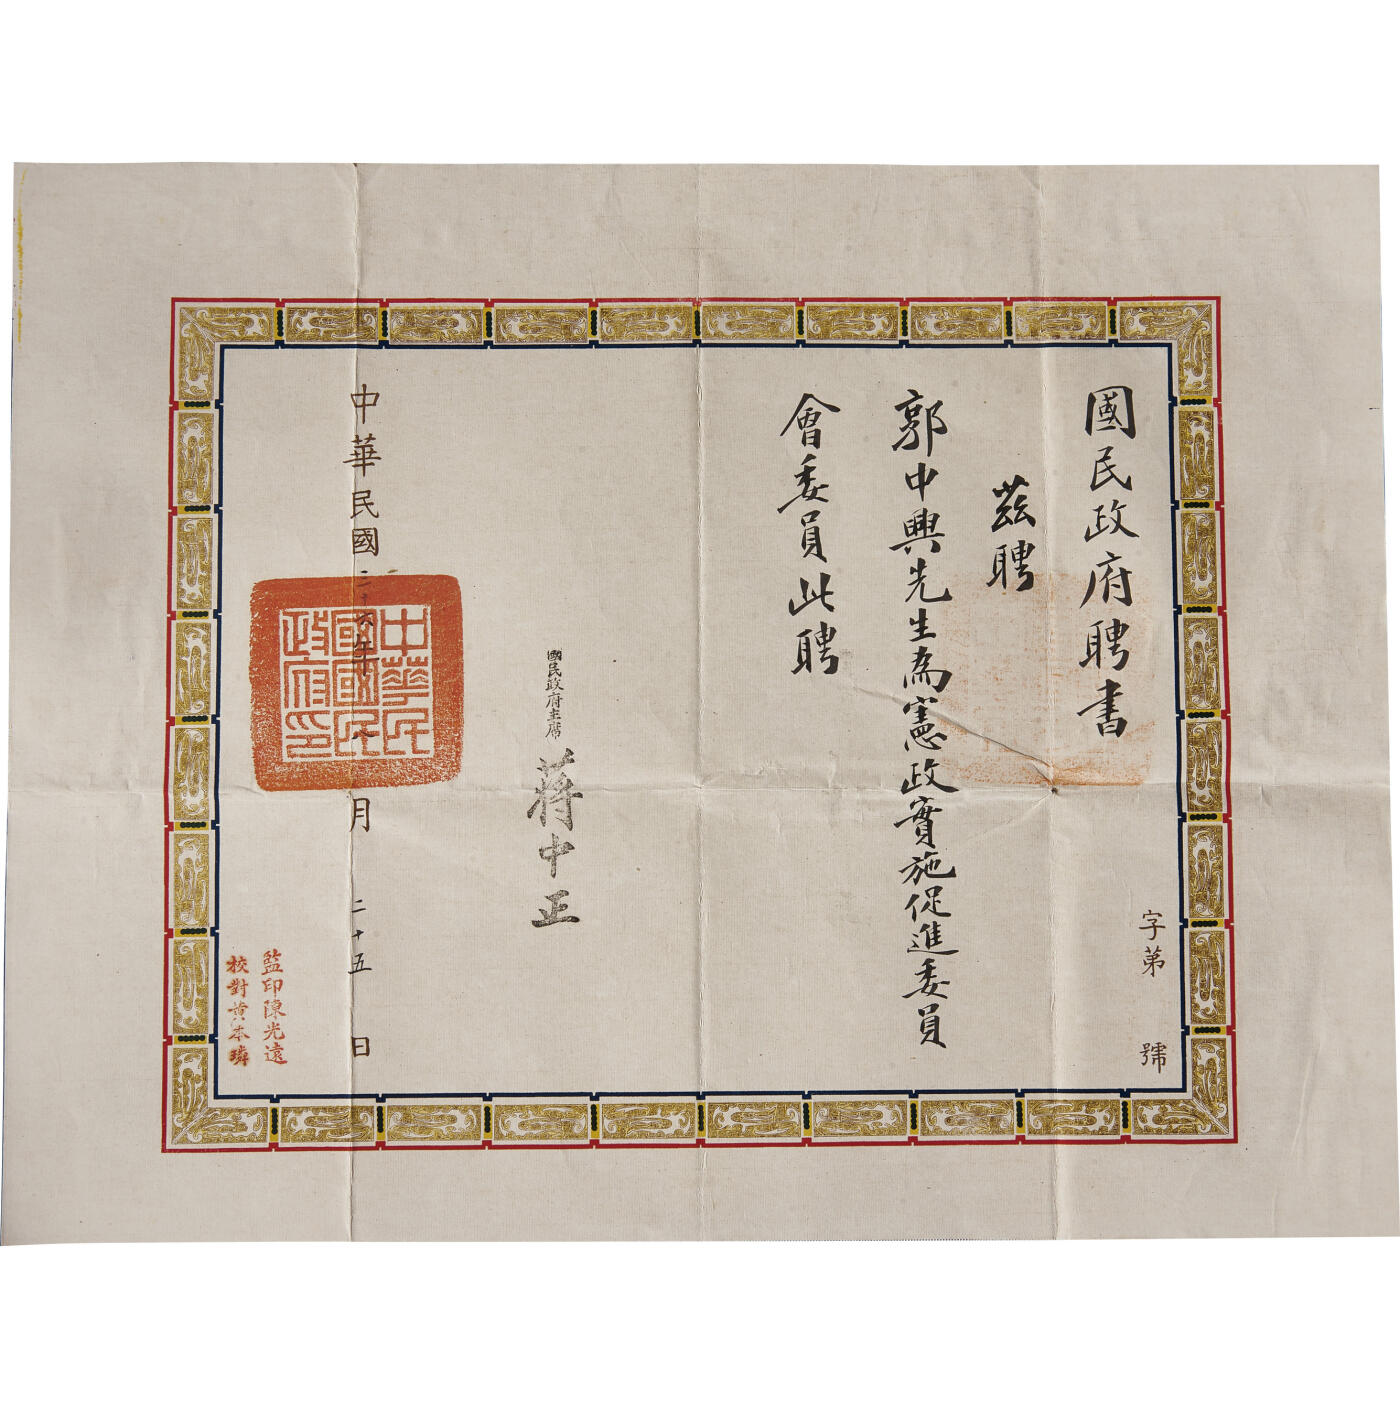 國民政府聘書
字第 號
茲聘
郭中興先生為憲政實施促進委員
會委員此聘
國民政府主席 蔣中正
中華民國三十六年八月二十五日
中華民國國民政府印
監印陳光遠
校對黄本璘